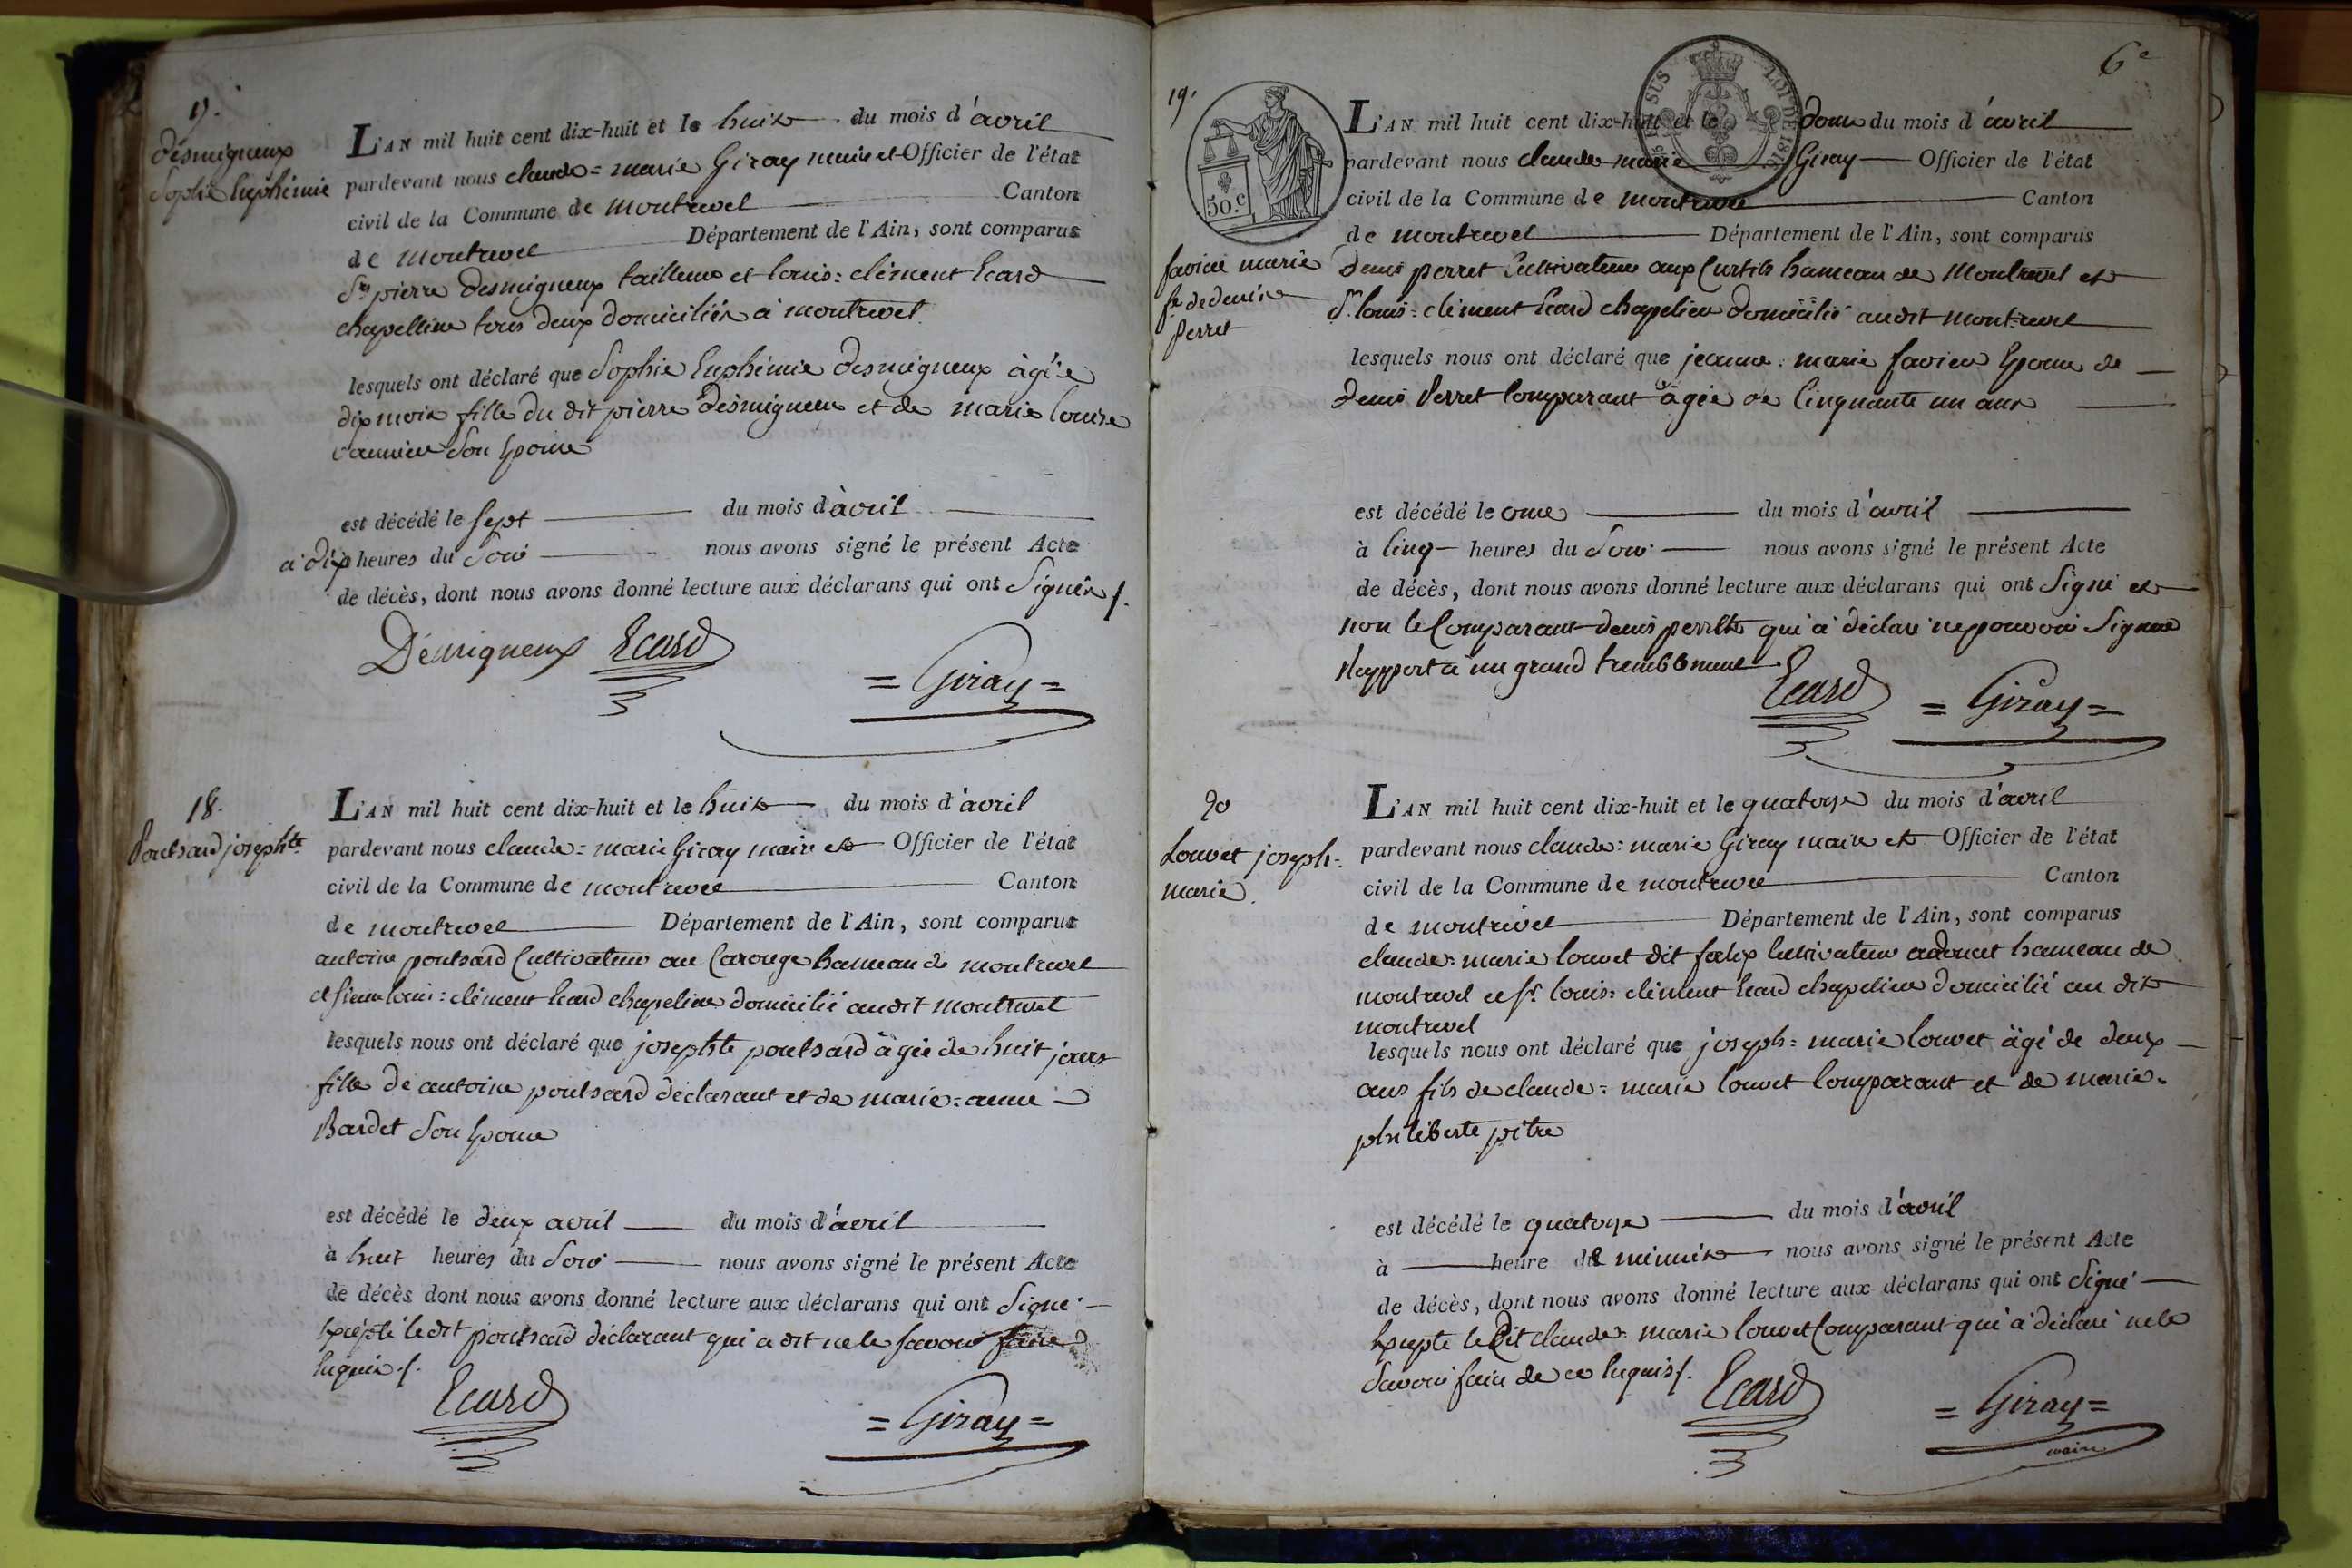 17.
désmigneux
Sophie Euphémie
L'AN mil huit cent dix-huit et le huit du mois d'avril
pardevant nous claude=marie Giray maire et Officier de l'état
civil de la Commune de montrevel Canton
de montrevel Département de l'Ain, sont comparus
Sr pierre desmigneux tailleur et louis=clément Ecard
chapellier tous deux domiciliés à montrevel
lesquels ont déclaré que Sophie Euphémie desmigneux àgée
dix mois fille du dit pierre désmigneux et de marie louise
Son Epouse
est décédé le sept du mois d'àvril
à dix heures du Soir nous avons signé le présent Acte
de décès, dont nous avons donné lecture aux déclarans qui ont Signés /.
Démigneux Ecard
= Giray =
18.
Poutsard josephte
L'AN mil huit cent dix-huit et le huit du mois d'avril
pardevant nous claude=marie Giray maire et Officier de l'état
civil de la Commune de montrevel Canton
de montrevel Département de l'Ain, sont comparus
antoine poutsard Cultivateur au Carouge hameau de montrevel
et sieur louis=clément Ecard chapelier domicilié audit montrevel
lesquels nous ont déclaré que josephte poutsard àgée de huit jours
fille de antoine poutsard déclarant et de marie=anne
Bardet Son Epouse
est décédé le deux avril du mois d'avril
à huit heures du Soir nous avons signé le présent Acte
de décès dont nous avons donné lecture aux déclarans qui ont Signé
Expépté ledit poutsard déclarant qui a dit ne le savoir faire
Enquis /.
Ecard
= Giray =
6e
19.
SUS LOI DE 1816
50.c
favier marie
fe de denis
Perret
L'AN mil huit cent dix-huit et le douze du mois d'avril
pardevant nous claude marie Giray Officier de l'état
civil de la Commune de montrevel Canton
de montrevel Département de l'Ain, sont comparus
denis perret Cultivateur aux Curtils hameau de Montrevel et
Sr louis=clément Ecard chapelier domicilié audit montrevel
lesquels nous ont déclaré que jeanne=marie favier Epouse de
denis Perret Comparant àgée de Cinquante un ans
est décédé le onze du mois d'avril
à Cinq heures du Soir nous avons signé le présent Acte
de décès, dont nous avons donné lecture aux déclarans qui ont Signé et
non le Comparant denis perret qui à déclaré ne pouvoir Signer
Rapport à un grand tremblement
Ecard = Giray =
20
Louvet joseph=
marie.
L'AN mil huit cent dix-huit et le quatorze du mois d'avril
pardevant nous claude=marie Giray maire et Officier de l'état
civil de la Commune de montrevel Canton
de montrevel Département de l'Ain, sont comparus
claude=marie louvet dit felix Cultivateur hameau de
montrevel et Sr louis=clément Ecard chapelier domicilié au dit
montrevel
lesquels nous ont déclaré que joseph=marie louvet àgé de deux
ans fils de claude=marie louvet Comparant et de marie=
philiberte pitre
est décédé le quatorze du mois d'avril
à heure de minuit nous avons signé le présent Acte
de décès, dont nous avons donné lecture aux déclarans qui ont Signé
Expepté le Dit claude=marie louvet Comparant qui à déclaré ne le
Savoir faire de ce Enquis /.
Ecard = Giray =
maire